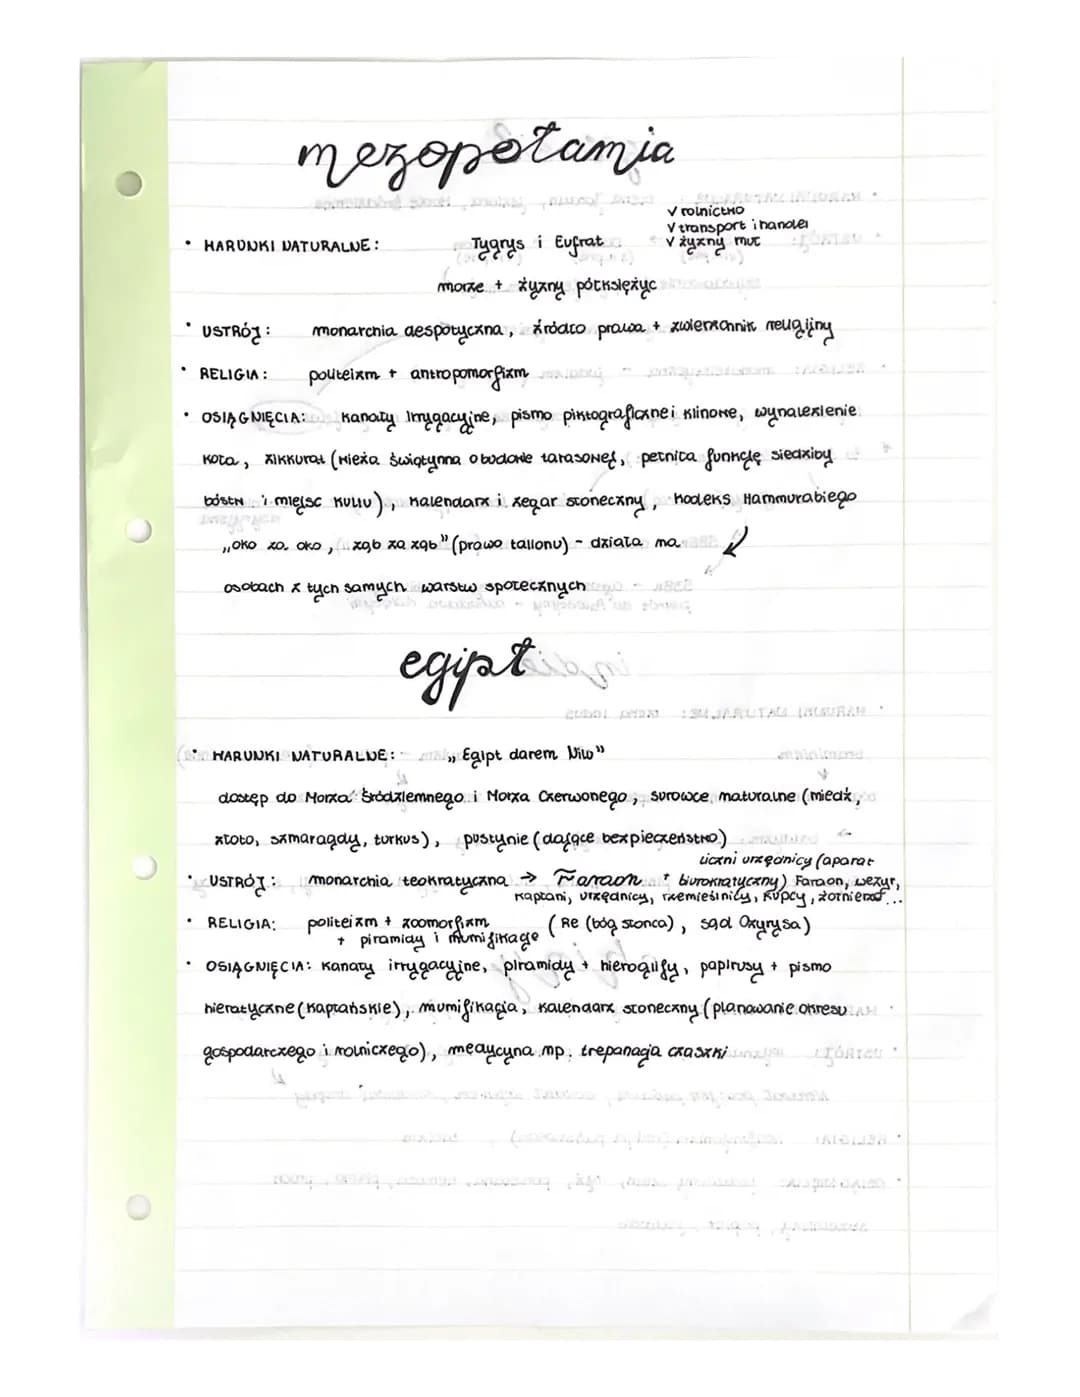 mezopotamia
√ rolnictwo
√ transport i handel
• WARUNKI NATURALNE: Tygrys i Eufrat √ żyzny muł
morze + żyzny półksiężyc
• USTRÓJ: monarchia despotyczna, źródło prawa + zwierzchnik religijny
• RELIGIA: politeizm + antropomorfizm
• OSIĄGNIĘCIA: kanały irygacyjne, pismo piktograficzne i klinowe, wynalezienie
koła, zikkurat (wieża świątynna o budowie tarasowej, pełniła funkcję siedziby
bóstw i miejsc kultu), kalendarz i zegar słoneczny, kodeks Hammurabiego
„oko za oko, ząb za ząb" (prawo talionu) - działa na
osobach z tych samych warstw społecznych
egipt
• WARUNKI NATURALNE: „Egipt darem Nilu"
dostęp do Morza Śródziemnego i Morza Czerwonego, surowce naturalne (miedź,
złoto, szmaragdy, turkus), pustynie (dające bezpieczeństwo)
liczni urzędnicy (aparat
• USTRÓJ: monarchia teokratyczna → Faraon + biurokratyczny) Faraon, wezyr,
kapłani, urzędnicy, rzemieślnicy, kupcy, żołnierze...
• RELIGIA: politeizm + zoomorfizm (Re (bóg słońca), sąd Ozyrysa)
+ piramidy i mumifikacje
• OSIĄGNIĘCIA: kanały irrygacyjne, piramidy + hieroglify, papirusy + pismo
hieratyczne (kapłańskie), mumifikacja, kalendarz słoneczny (planowanie okresu
gospodarczego i rolniczego), medycyna np. trepanacja czaszki